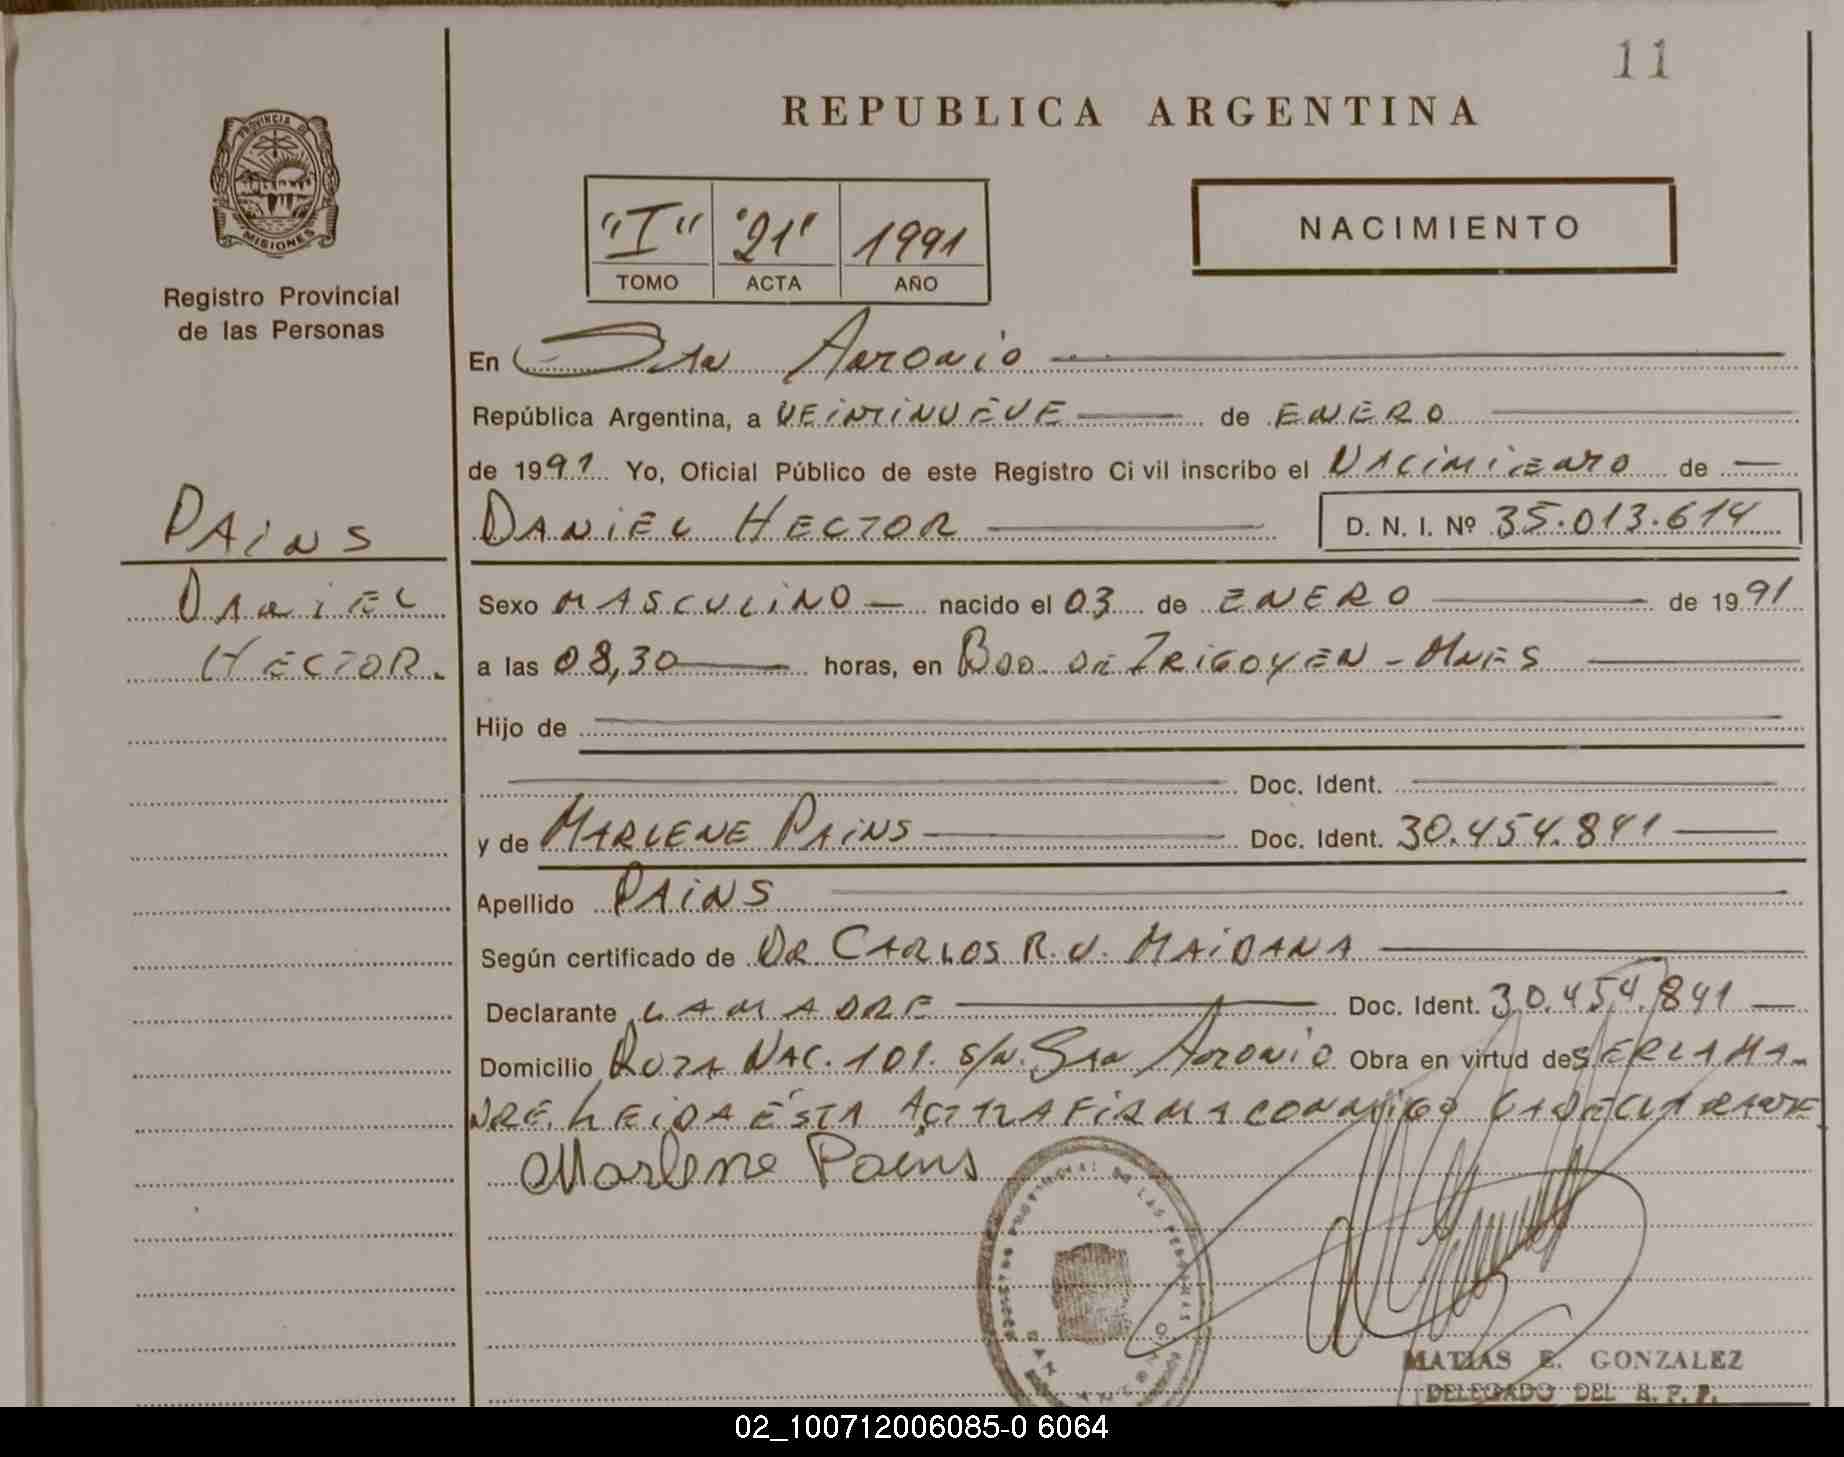 11
REPUBLICA ARGENTINA
PROVINCIA DE
MISIONES
Registro Provincial
de las Personas
"I" "21" 1991
TOMO ACTA AÑO
NACIMIENTO
En San Antonio
República Argentina, a VEINTINUEVE de ENERO
de 1991 Yo, Oficial Público de este Registro Ci vil inscribo el NACIMIENTO de
PAINS
DANIEL HECTOR
D. N. I. Nº 35.013.614
DANIEL
HECTOR.
Sexo MASCULINO nacido el 03 de ENERO de 1991
a las 08,30 horas, en BDO. DE IRIGOYEN - MNES
Hijo de
Doc. Ident.
y de MARLENE PAINS Doc. Ident. 30.454.841
Apellido PAINS
Según certificado de DR CARLOS R. V. MAIDANA
Declarante LA MADRE Doc. Ident. 30.454.841
Domicilio RUTA NAC. 101. S/N. San Antonio Obra en virtud de SER LA MA-
DRE. LEIDA ESTA ACTA LA FIRMA CONMIGO LA DECLARANTE
Marlene Pains
PROVINCIAL DE LAS PERSONAS
MATIAS E. GONZALEZ
DELEGADO DEL R. P. P.
02_100712006085-0 6064